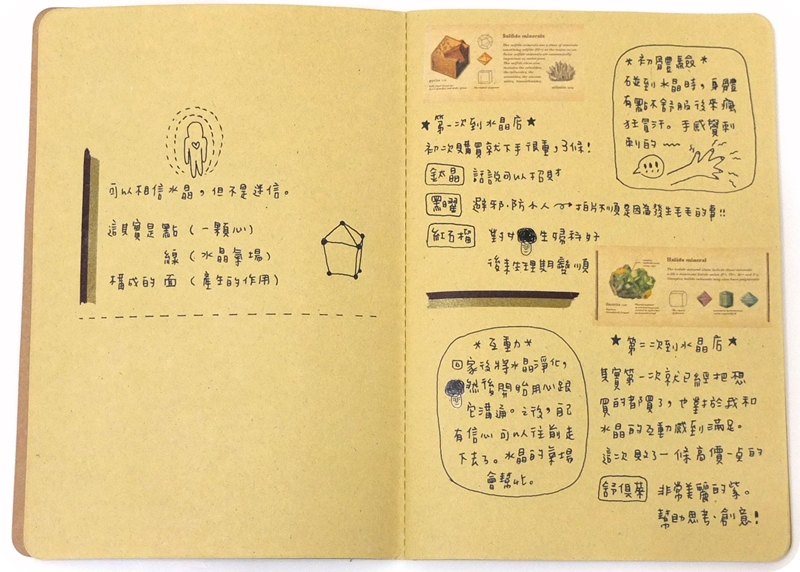 可以相信水晶，但不是迷信。
這其實是點（一顆心）
線（水晶氣場）
構成的面（產生的作用）
Sulfide minerals
★第一次到水晶店★
初次購買就下手很重，3條！
鈦晶 話說可以招財
黑曜 避邪、防小人 拍片不順是因為發生毛毛的事!!
紅石榴 對女生婦科好
後來生理期變順
*初體驗*
碰到水晶時，身體
有點不舒服後來瘋
狂冒汗。手感覺刺
刺的~~
Halide mineral
*互動*
回家後將水晶淨化，
然後開始用心跟
它溝通。之後，自己
有信心可以往前走
下去了。水晶的氣場
會幫忙。
★第二次到水晶店★
其實第一次就已經把想
買的都買了，也對於我和
水晶的互動感到滿足。
這次只買了一條高價一點的
舒俱萊 非常美麗的紫。
幫助思考、創意！